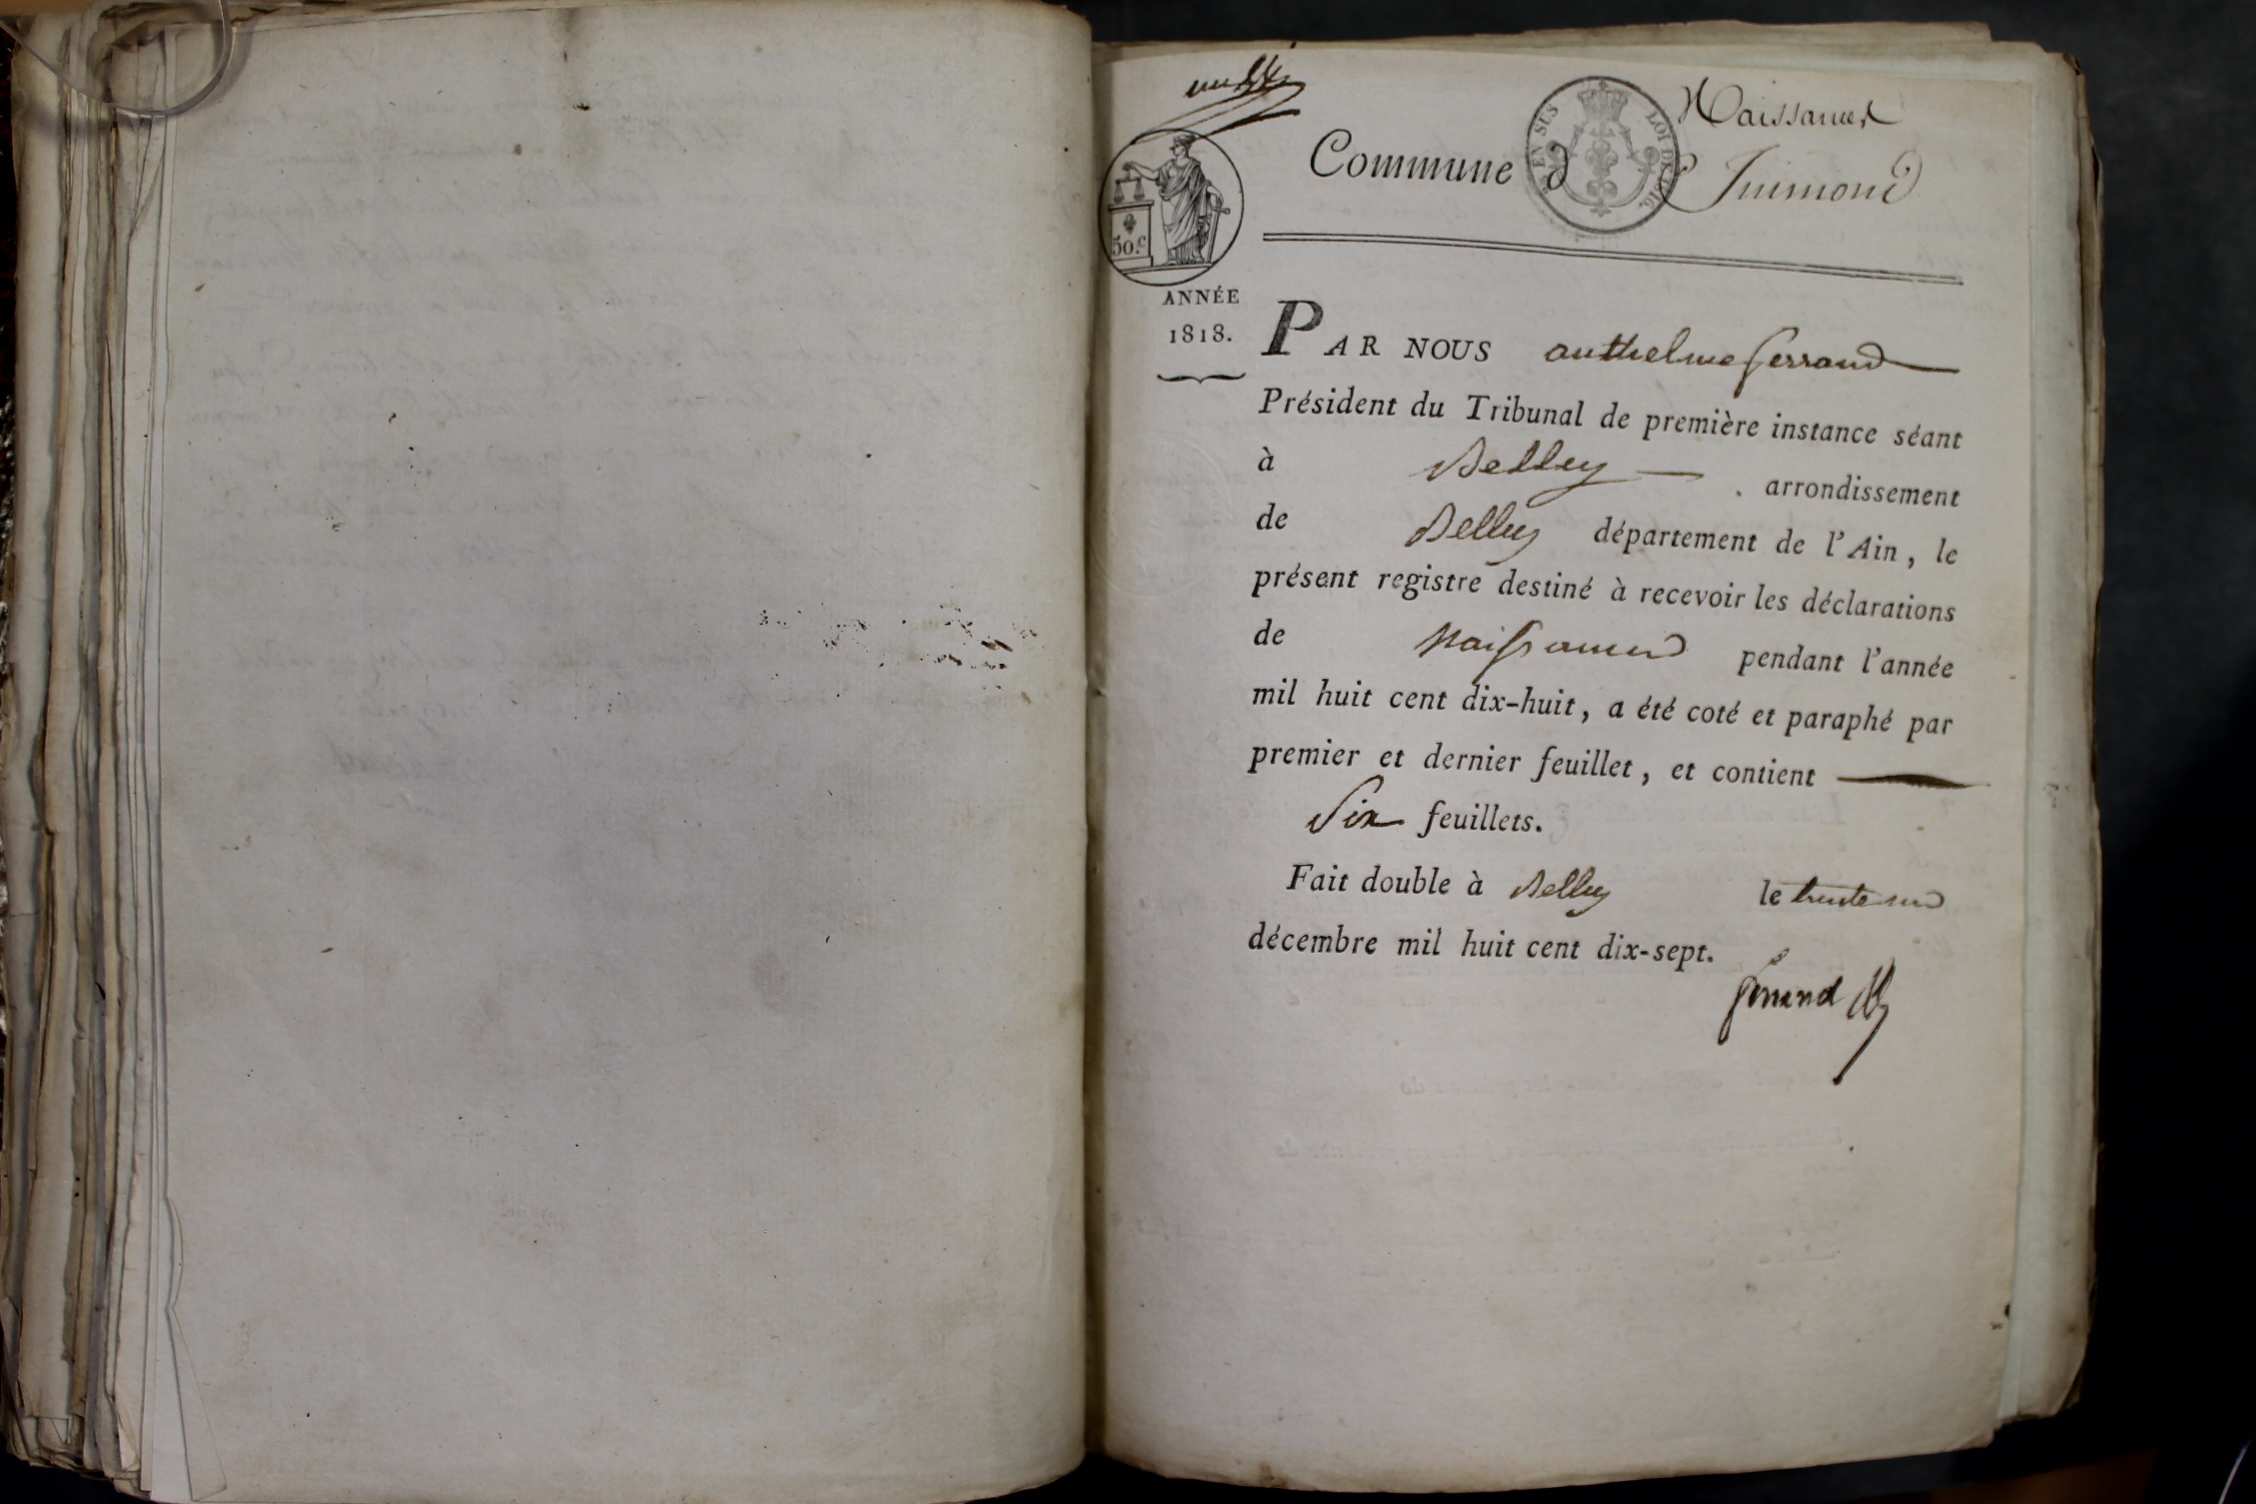 Naissances
EN SUS LOI DE 1816.
Commune d Juimond
50.c
ANNÉE
1818.
PAR NOUS anthelme ferrand
Président du Tribunal de première instance séant
à Belley arrondissement
de Belley département de l'Ain, le
présent registre destiné à recevoir les déclarations
de Naissances pendant l'année
mil huit cent dix-huit, a été coté et paraphé par
premier et dernier feuillet, et contient
Six feuillets.
Fait double à Belley le trente un
décembre mil huit cent dix-sept.
ferrand